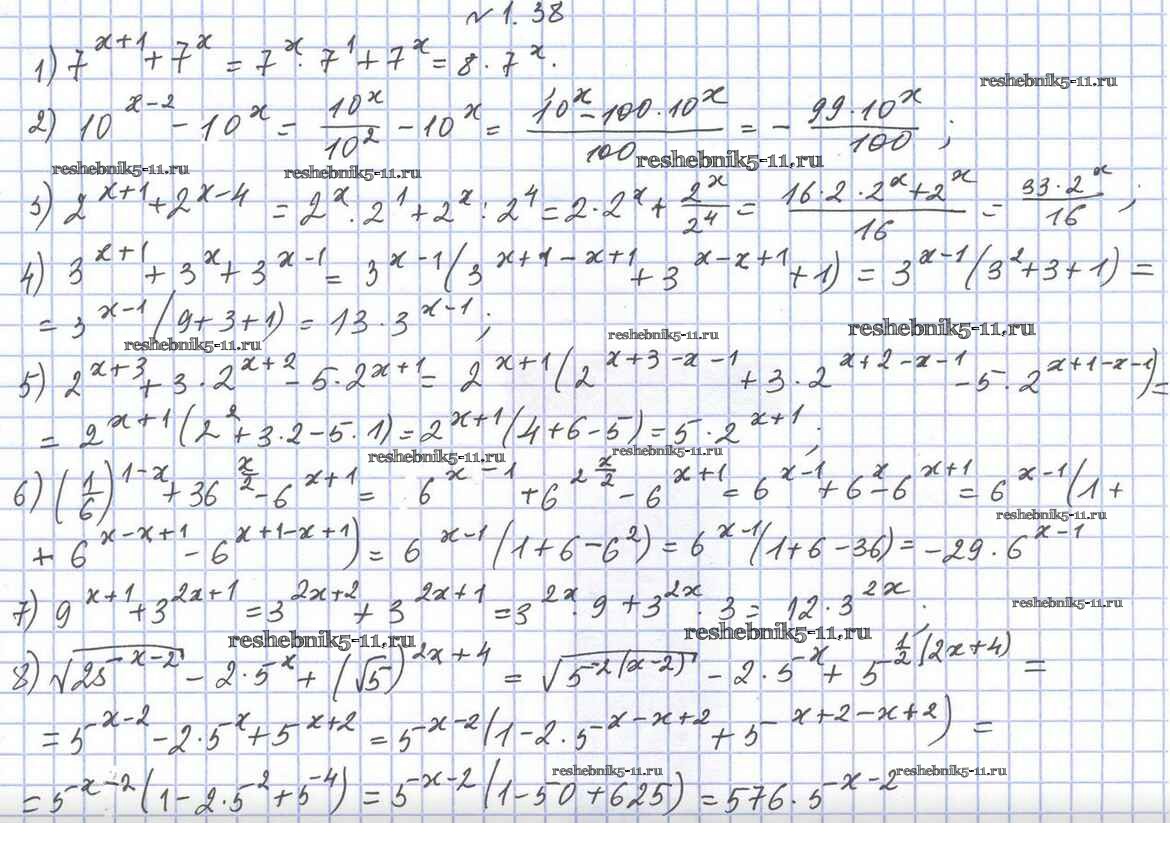 № 1.38
1) 7^{x+1} + 7^x = 7^x · 7^1 + 7^x = 8 · 7^x.
reshebnik5-11.ru
2) 10^{x-2} - 10^x = \frac{10^x}{10^2} - 10^x = \frac{10^x - 100 · 10^x}{100} = - \frac{99 · 10^x}{100} ;
reshebnik5-11.ru reshebnik5-11.ru reshebnik5-11.ru
3) 2^{x+1} + 2^{x-4} = 2^x · 2^1 + 2^x : 2^4 = 2 · 2^x + \frac{2^x}{2^4} = \frac{16 · 2 · 2^x + 2^x}{16} = \frac{33 · 2^x}{16} ;
4) 3^{x+1} + 3^x + 3^{x-1} = 3^{x-1} (3^{x+1-x+1} + 3^{x-x+1} + 1) = 3^{x-1} (3^2 + 3 + 1) =
= 3^{x-1} (9 + 3 + 1) = 13 · 3^{x-1} ;
reshebnik5-11.ru reshebnik5-11.ru reshebnik5-11.ru
5) 2^{x+3} + 3 · 2^{x+2} - 5 · 2^{x+1} = 2^{x+1} (2^{x+3-x-1} + 3 · 2^{x+2-x-1} - 5 · 2^{x+1-x-1}) =
= 2^{x+1} (2^2 + 3 · 2 - 5 · 1) = 2^{x+1} (4 + 6 - 5) = 5 · 2^{x+1} ;
reshebnik5-11.ru reshebnik5-11.ru
6) (\frac{1}{6})^{1-x} + 36^{\frac{x}{2}} - 6^{x+1} = 6^{x-1} + 6^{2\frac{x}{2}} - 6^{x+1} = 6^{x-1} + 6^x - 6^{x+1} = 6^{x-1} (1 +
reshebnik5-11.ru
+ 6^{x-x+1} - 6^{x+1-x+1}) = 6^{x-1} (1 + 6 - 6^2) = 6^{x-1} (1 + 6 - 36) = -29 · 6^{x-1}
7) 9^{x+1} + 3^{2x+1} = 3^{2x+2} + 3^{2x+1} = 3^{2x} · 9 + 3^{2x} · 3 = 12 · 3^{2x} ;
reshebnik5-11.ru reshebnik5-11.ru reshebnik5-11.ru
8) \sqrt{25^{-x-2}} - 2 · 5^{-x} + (\sqrt{5})^{2x+4} = \sqrt{5^{-2(x-2)}} - 2 · 5^{-x} + 5^{\frac{1}{2}(2x+4)} =
= 5^{-x-2} - 2 · 5^{-x} + 5^{-x+2} = 5^{-x-2} (1 - 2 · 5^{-x-x+2} + 5^{-x+2-x+2}) =
reshebnik5-11.ru reshebnik5-11.ru
= 5^{-x-2} (1 - 2 · 5^{-2} + 5^{-4}) = 5^{-x-2} (1 - 50 + 625) = 576 · 5^{-x-2}